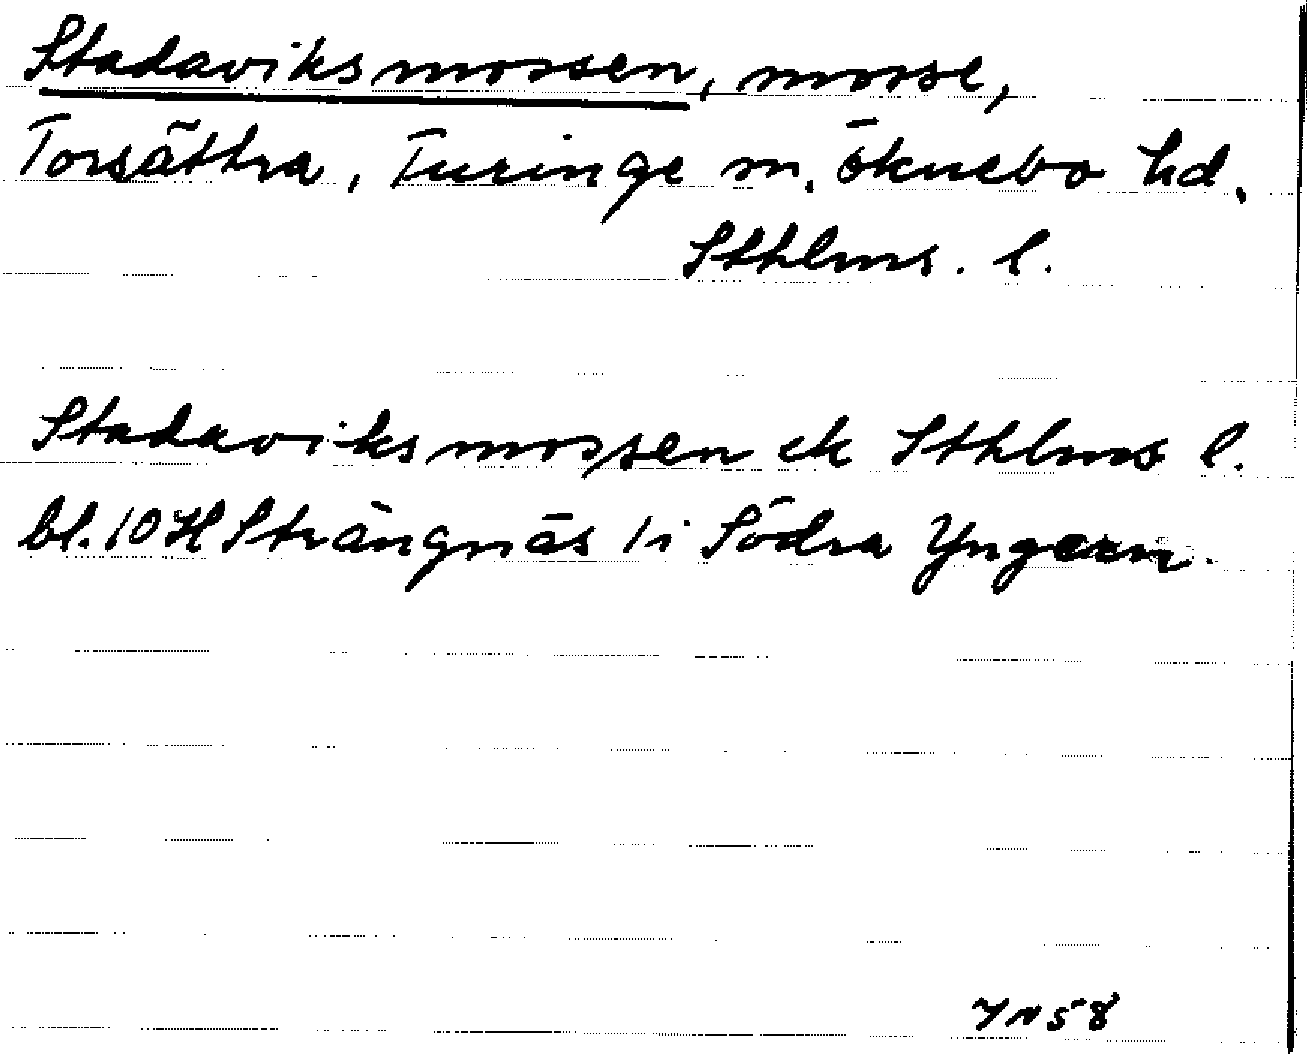 Stadaviksmossen, mosse,
Torsättra, Turinge sn, Öknebo hd.
Sthlms. l.
Stadaviksmossen ek Sthlms l.
bl. 10 H Strängnäs 1i Södra Yngern.